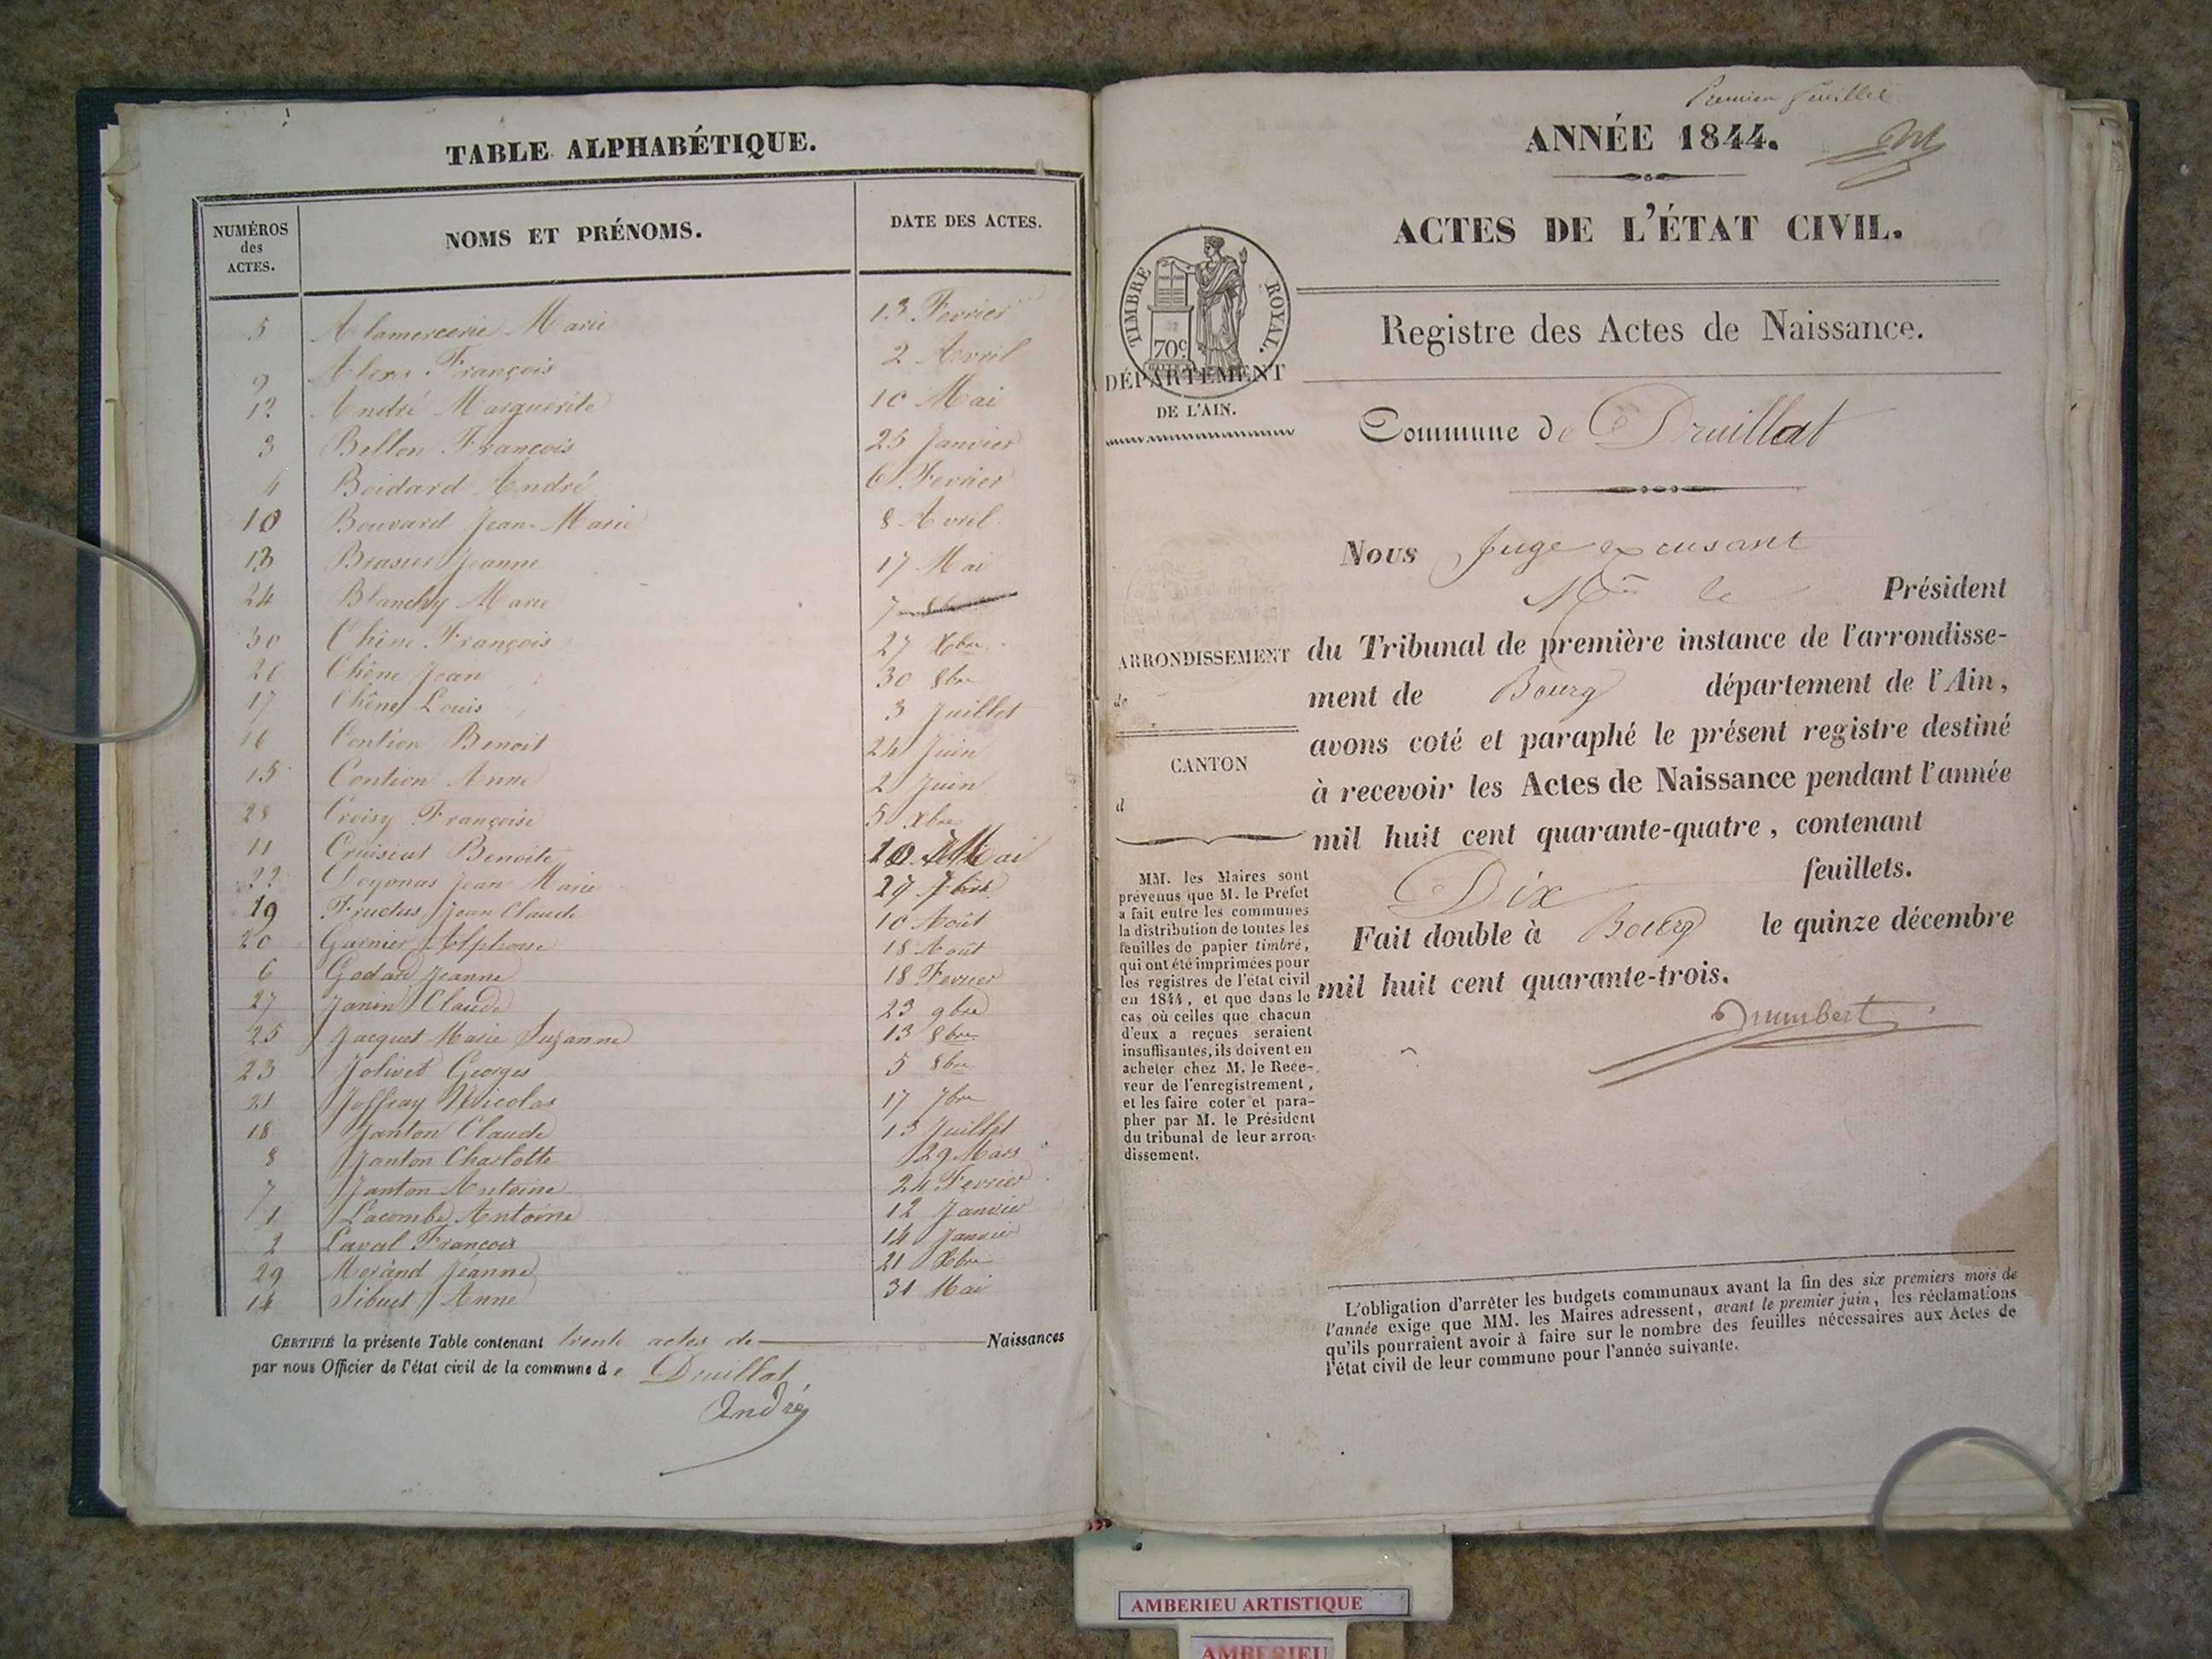 TABLE ALPHABÉTIQUE.
NUMÉROS des ACTES. NOMS ET PRÉNOMS. DATE DES ACTES.
5 Alamercerie Marie 13 Fevrier
9 François 2 Avril
12 André Marguerite 10 Mai
3 Bellon François 25 Janvier
4 Boidard André 6 Fevrier
10 Bouvard Jean-Marie 8 Avril
13 Brasier Jeanne 17 Mai
24 Blanchy Marie 7
30 Chêne François 27 Xbre
26 Chêne Jean 30 8bre
17 Chêne Louis 3 Juillet
16 Contion Benoit 24 Juin
15 Contion Anne 2 Juin
28 Croisy Françoise 5 Xbre
11 Cruisiat Benoite 10 Mai
22 Doyonas Jean Marie 29 7bre
19 Fructus Jean Claude 10 Août
20 Garnier Alphonse 18 Août
6 Godard Jeanne 18 Fevrier
27 Janin Claude 23 9bre
25 Jacquet Marie Suzanne 13 8bre
23 Jolivet Georges 5 8bre
21 Joffray Nicolas 17 7bre
18 Janton Claude 13 Juillet
8 Janton Charlotte 29 Mars
7 Janton Antoine 24 Fevrier
1 Lacombe Antoine 12 Janvier
2 Laval François 14 Janvier
29 Morand Jeanne 21 Xbre
14 Sibuet Anne 31 Mai
CERTIFIÉ la présente Table contenant trente actes de Naissances
par nous Officier de l'état civil de la commune de Druillat
André
Premier feuillet
ANNÉE 1844.
ACTES DE L'ÉTAT CIVIL.
TIMBRE ROYAL.
70c
Registre des Actes de Naissance.
DÉPARTEMENT
DE L'AIN.
Commune de Druillat
Nous Juge excusant
Mr le Président
ARRONDISSEMENT
de
CANTON
d
du Tribunal de première instance de l'arrondisse-
ment de Bourg département de l'Ain,
avons coté et paraphé le présent registre destiné
à recevoir les Actes de Naissance pendant l'année
mil huit cent quarante-quatre, contenant
Dix feuillets.
Fait double à Bourg le quinze décembre
mil huit cent quarante-trois.
MM. les Maires sont
prévenus que M. le Préfet
a fait entre les communes
la distribution de toutes les
feuilles de papier timbré,
qui ont été imprimées pour
les registres de l'état civil
en 1844, et que dans le
cas où celles que chacun
d'eux a reçues seraient
insuffisantes, ils doivent en
acheter chez M. le Rece-
veur de l'enregistrement,
et les faire coter et para-
pher par M. le Président
du tribunal de leur arron-
dissement.
L'obligation d'arrêter les budgets communaux avant la fin des six premiers mois de
l'année exige que MM. les Maires adressent, avant le premier juin, les réclamations
qu'ils pourraient avoir à faire sur le nombre des feuilles nécessaires aux Actes de
l'état civil de leur commune pour l'année suivante.
AMBERIEU ARTISTIQUE
AMBERIEU